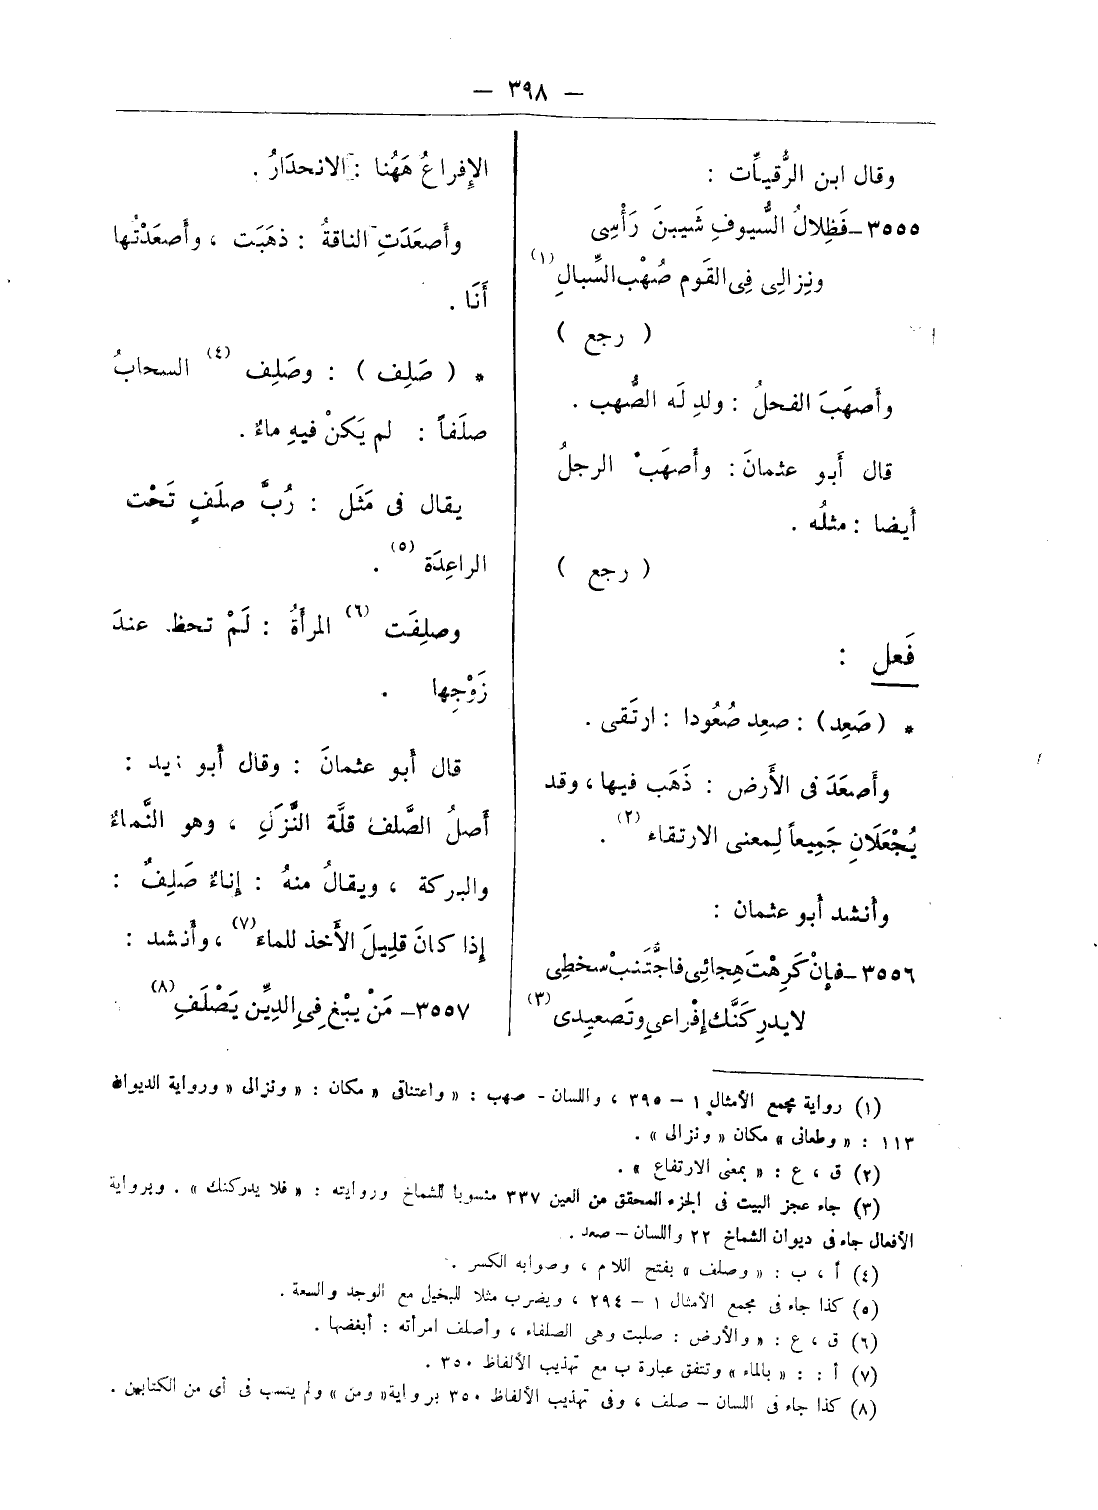 — ٣٩٨ —
وقال ابن الرُّقيات :
٣٥٥٥ــ فَظِلالُ السُّيوفِ شَيبنَ رَأْسِى
ونِزالِى فِى القَوم صُهْب السِّبالِ (١)
( رجع )
وأَصهَبَ الفحلُ : ولدِ لَه الصُّهب .
قال أَبو عثمانَ : وأَصهَبَ الرجلُ
أَيضا : مثلُه .
( رجع )
فَعل :
* (صَعِد) : صعِد صُعُودا : ارتَقى .
وأَصعَدَ فى الأَرض : ذَهَب فيها ، وقد
يُجْعَلَانِ جَمِيعاً لِمعنى الارتقاء (٢) .
وأنشد أَبو عثمان :
٣٥٥٦ــ فإِنْ كَرِهْتَ هِجائِى فاجْتَنبْ سخطِى
لا يدرِكَنَّك إِفْراعي وتَصعِيدِى (٣)
الإِفراعُ هَهُنا : الانحدَارُ .
وأَصعَدَتِ الناقةُ : ذهَبَت ، وأَصعَدْتُها
أَنَا .
* ( صَلِف ) : وصَلِف (٤) السحابُ
صلَفاً : لم يَكنْ فيهِ ماءٌ .
يقال فى مَثَل : رُبَّ صلَفٍ تَحْت
الراعِدَة (٥) .
وصلِفَت (٦) المرأَةُ : لَمْ تحظ عندَ
زَوْجِها .
قال أَبو عثمانَ : وقال أَبو زيد :
أَصلُ الصَّلف قلَّة النَّزَلِ ، وهو النَّماءُ
والبركة ، ويقالُ منهُ : إِناءٌ صَلِفٌ :
إِذا كانَ قلِيلَ الأَخذ للماء (٧) ، وأَنشد :
٣٥٥٧ــ مَنْ يبْغِ فِى الدِّينِ يَصْلَفِ (٨)
(١) رواية مجمع الأمثال ١ – ٣٩٥ ، واللسان - صهب : « واعتناقى » مكان : « ونزالى » ورواية الديوان
١١٣ : « وطعانى » مكان « ونزالى » .
(٢) ق ، ع : « بمعنى الارتفاع » .
(٣) جاء عجز البيت فى الجزء المحقق من العين ٣٣٧ منسوبا للشماخ وروايته : « فلا يدركنك » . وبرواية
الأفعال جاء فى ديوان الشماخ ٢٢ واللسان – صعد .
(٤) أ ، ب : « وصلف » بفتح اللام ، وصوابه الكسر .
(٥) كذا جاء فى مجمع الأمثال ١ – ٢٩٤ ، ويضرب مثلا للبخيل مع الوجد والسعة .
(٦) ق ، ع : « والأرض : صلبت وهى الصلفاء ، وأصلف امرأته : أبغضها .
(٧) أ : : « بالماء » وتتفق عبارة ب مع تهذيب الألفاظ ٣٥٠ .
(٨) كذا جاء فى اللسان – صلف ، وفى تهذيب الألفاظ ٣٥٠ برواية « ومن » ولم ينسب فى أى من الكتابين .